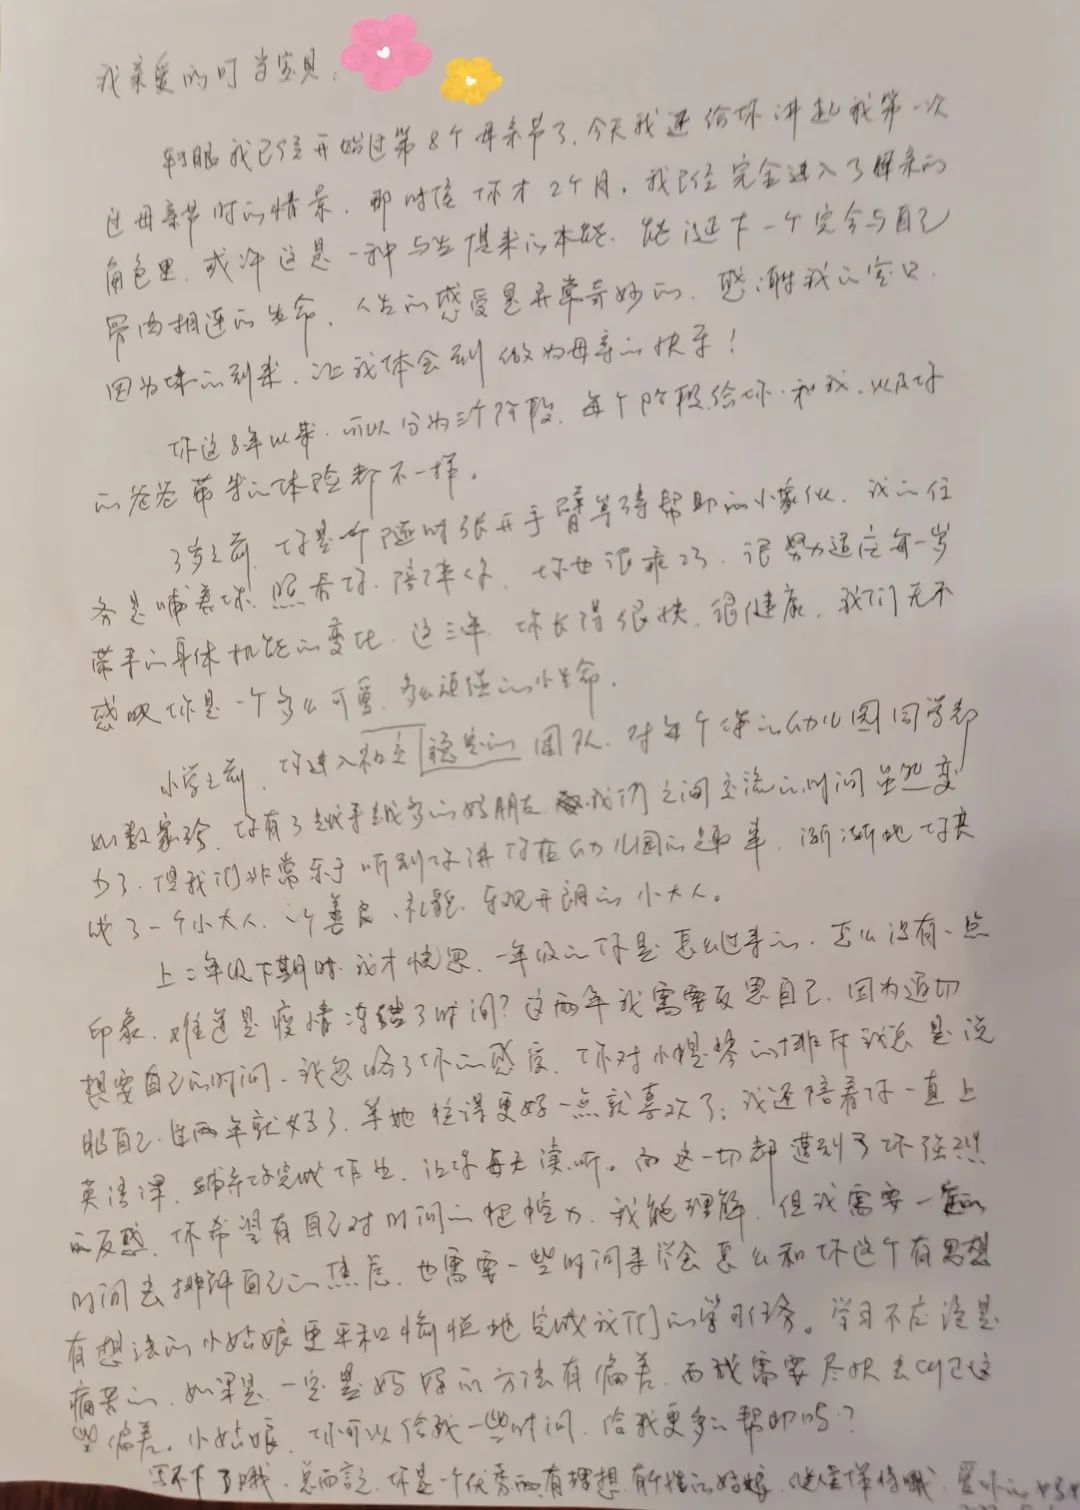 我亲爱的叮当宝贝：
转眼我已经开始过第8个母亲节了，今天我还给你讲起我第一次
过母亲节时的情景，那时候你才2个月，我已经完全进入了母亲的
角色里，或许这是一种与生俱来的本能，能诞下一个完全与自己
骨肉相连的生命，人生的感受是异常奇妙的，感谢我的宝贝，
因为你的到来，让我体会到做为母亲的快乐！
你这8年以来，可以分为三个阶段，每个阶段给你、和我、以及你
的爸爸带来的体验都不一样。
3岁之前，你是个随时张开手臂等待帮助的小家伙，我的任
务是哺养你，照看你，陪伴你，你也很乖巧，很努力适应每一岁
带来的身体机能的变化，这三年，你长得很快，很健康，我们无不
感叹你是一个多么可爱，多么顽强的小生命。
小学之前，你进入社交稳定的团队，对每个你的幼儿园同学都
如数家珍，你有了越来越多的好朋友，我们之间交流的时间虽然变
少了，但我们非常乐于听到你讲你在幼儿园的趣事，渐渐地你变
成了一个小大人，一个善良、礼貌、乐观开朗的小大人。
上二年级下期时，我才恍思，一年级的你是怎么过来的，怎么没有一点
印象，难道是疫情冻结了时间？这两年我需要反思自己，因为迫切
想要自己的时间，我忽略了你的感受，你对小提琴的排斥我总是说
服自己，过两年就好了，等她拉得更好一点就喜欢了；我还陪着你一直上
英语课，辅导你完成作业，让你每天读听。而这一切都遭到了你强烈
的反感，你希望有自己对时间的把控力，我能理解，但我需要一定的
时间去排解自己的焦虑，也需要一些时间来学会怎么和你这个有思想
有想法的小姑娘更平和愉悦地完成我们的学习任务。学习不应该是
痛苦的，如果是，一定是妈妈的方法有偏差，而我需要尽快去纠正这
些偏差。小姑娘，你可以给我一些时间，给我更多的帮助吗？
写不下了哦，总而言之，你是一个优秀的有理想，有个性的姑娘，继续保持哦，爱你的妈妈